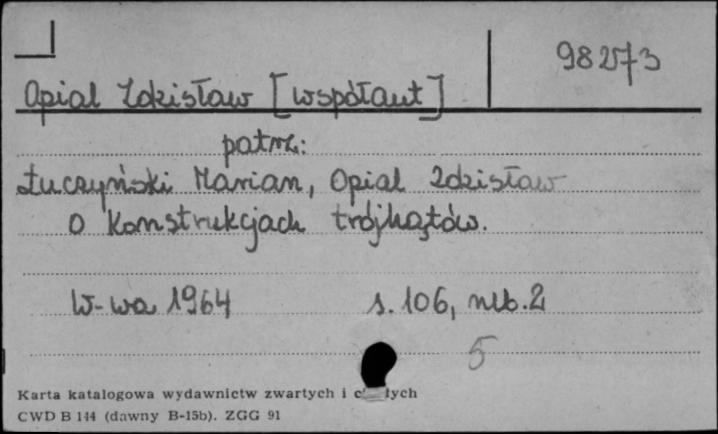 98273
Opial Zdzisław [współaut]
patrz:
Łuczyński Marian, Opial Zdzisław
O konstrukcjach trójkątów.
W-wa 1964 s. 106, nlb. 2
5
Karta katalogowa wydawnictw zwartych i
CWD B 144 (dawny B-15b). ZGG 91